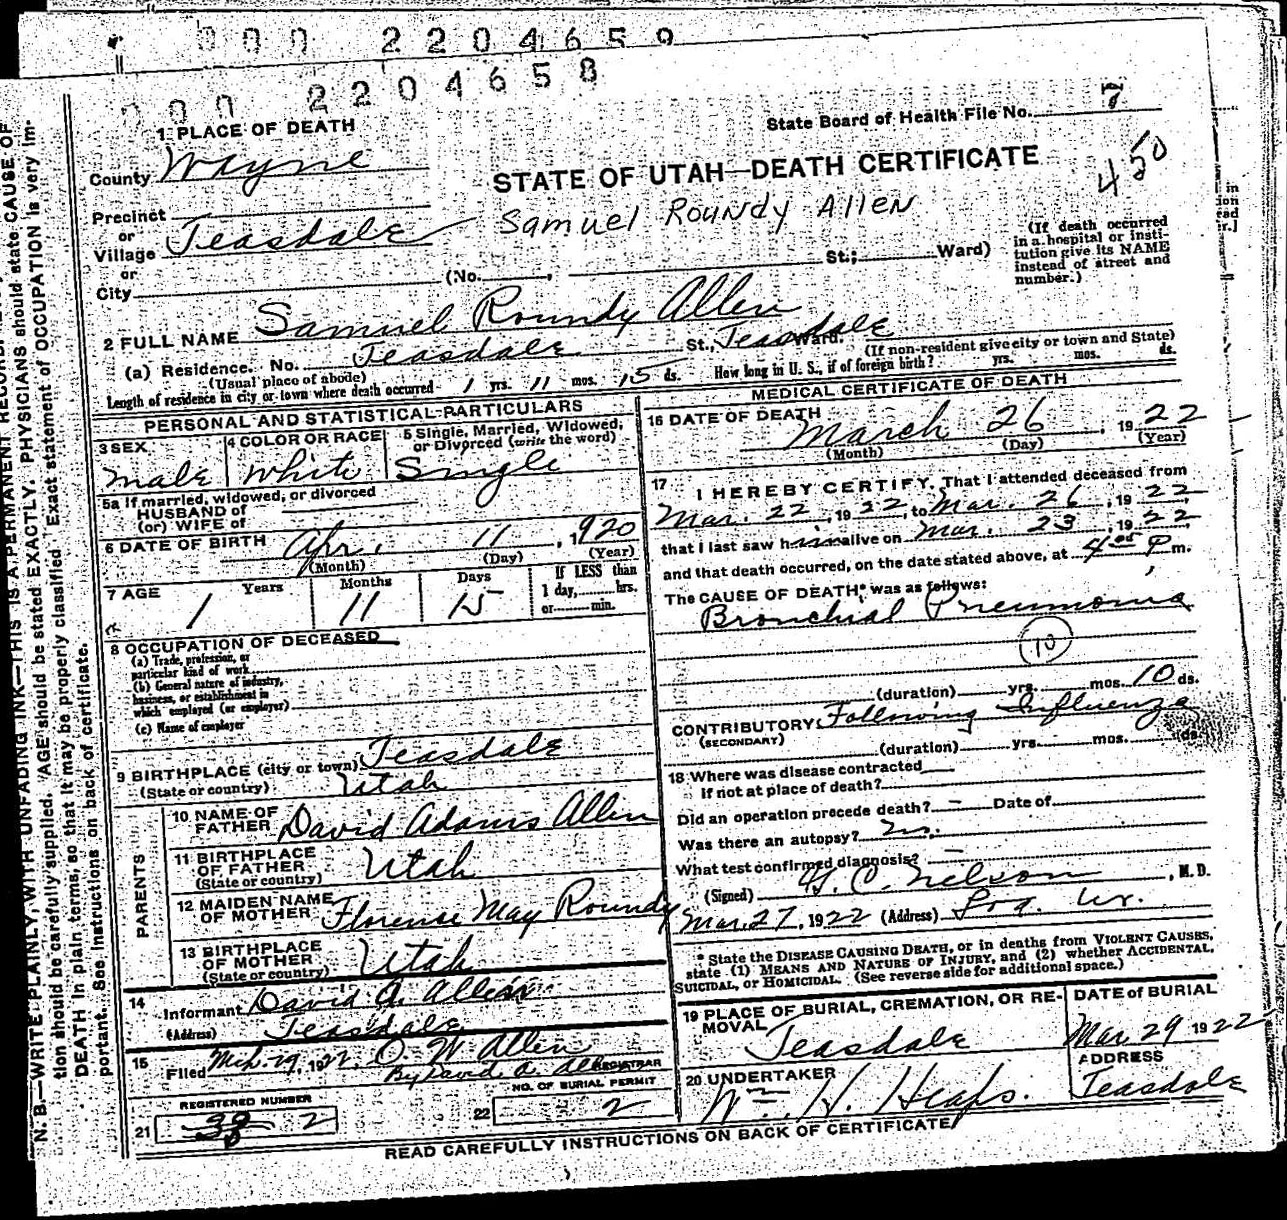 000 2204659
000 2204658
State Board of Health File No. 7
450
STATE OF UTAH—DEATH CERTIFICATE
Samuel Roundy Allen
1 PLACE OF DEATH
County Wayne
Precinct
or
Village Teasdale
or
City
(No. , St.; Ward)
(If death occurred
in a hospital or insti-
tution give its NAME
instead of street and
number.)
2 FULL NAME Samuel Roundy Allen
(a) Residence. No. Teasdale St., Teasdale Ward.
(Usual place of abode)
(If non-resident give city or town and State)
Length of residence in city or town where death occurred 1 yrs. 11 mos. 15 ds. How long in U. S., if of foreign birth? yrs. mos. ds.
PERSONAL AND STATISTICAL PARTICULARS
3 SEX
male
4 COLOR OR RACE
White
5 Single, Married, Widowed,
or Divorced (write the word)
Single
5a If married, widowed, or divorced
HUSBAND of
(or) WIFE of
6 DATE OF BIRTH Apr. 11, 1920
(Month) (Day) (Year)
7 AGE Years Months Days
1 11 15
If LESS than
1 day, hrs.
or min.
8 OCCUPATION OF DECEASED
(a) Trade, profession, or
particular kind of work
(b) General nature of industry,
business, or establishment in
which employed (or employer)
(c) Name of employer
9 BIRTHPLACE (city or town) Teasdale
(State or country) Utah
PARENTS
10 NAME OF
FATHER David Adams Allen
11 BIRTHPLACE
OF FATHER Utah
(State or country)
12 MAIDEN NAME
OF MOTHER Florence May Roundy
13 BIRTHPLACE
OF MOTHER Utah
(State or country)
14
Informant David A. Allen
(Address) Teasdale
15
Filed Mch. 29, 1922. O. W. Allen
By David A. Allen REGISTRAR
REGISTERED NUMBER
21 2
NO. OF BURIAL PERMIT
22 2
MEDICAL CERTIFICATE OF DEATH
16 DATE OF DEATH
March 26, 1922
(Month) (Day) (Year)
17 I HEREBY CERTIFY, That I attended deceased from
Mar. 22, 1922, to Mar. 26, 1922
that I last saw him alive on Mar. 23, 1922
and that death occurred, on the date stated above, at 4 P m.
The CAUSE OF DEATH* was as follows:
Bronchial Pneumonia
10
(duration) yrs. mos. 10 ds.
CONTRIBUTORY Following Influenza
(SECONDARY)
(duration) yrs. mos. ds.
18 Where was disease contracted
If not at place of death?
Did an operation precede death? — Date of
Was there an autopsy? No.
What test confirmed diagnosis? —
(Signed) Nelson, M.D.
Mar. 27, 1922 (Address)
* State the DISEASE CAUSING DEATH, or in deaths from VIOLENT CAUSES,
state (1) MEANS AND NATURE OF INJURY, and (2) whether ACCIDENTAL,
SUICIDAL, or HOMICIDAL. (See reverse side for additional space.)
19 PLACE OF BURIAL, CREMATION, OR RE-
MOVAL
Teasdale
DATE of BURIAL
Mar 29 1922
20 UNDERTAKER
Wm. H. Heaps.
ADDRESS
Teasdale
READ CAREFULLY INSTRUCTIONS ON BACK OF CERTIFICATE
N. B.—WRITE PLAINLY, WITH UNFADING INK—THIS IS A PERMANENT RECORD.
tion should be carefully supplied. AGE should be stated EXACTLY. PHYSICIANS should state CAUSE OF
DEATH in plain terms, so that it may be properly classified. Exact statement of OCCUPATION is very im-
portant. See instructions on back of certificate.